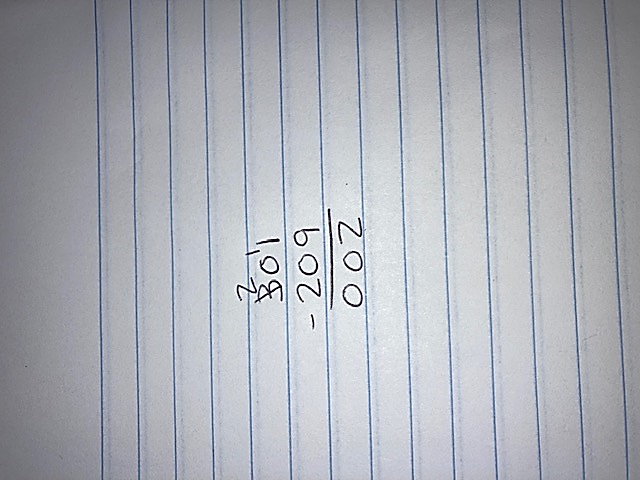 2 1
301
-209
002